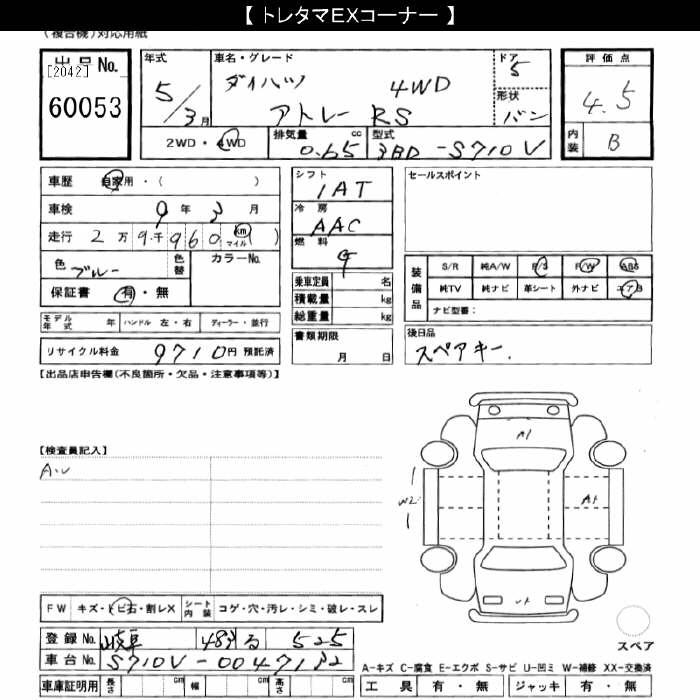 【 トレタマEXコーナー 】
(複合機)対応用紙
出品No.
[2042]
60053
年式
5/3月
車名・グレード
ダイハツ 4WD
アトレー RS
ドア
5
形状
バン
評価点
4.5
内装 B
2WD・4WD
排気量 0.65 cc
型式 3BD-S710V
車歴 自家用・( )
車検 9年 3月
走行 2万9千960 km マイル ( )
色 ブルー 色替
カラーNo.
保証書 有・無
シフト
1AT
冷房
AAC
燃料
G
乗車定員 名
積載量 kg
総重量 kg
セールスポイント
装備品
S/R 純A/W P/S P/W ABS
純TV 純ナビ 革シート 外ナビ エアB
ナビ型番:
モデル年式 年 ハンドル 左・右 ディーラー・並行
リサイクル料金 9710円 預託済
書類期限
月 日
後日品
スペアキー.
【出品店申告欄(不良箇所・欠品・注意事項等)】
【検査員記入】
A.U
A1
W2
A1
FW キズ・トビ石・割レX
シート内装 コゲ・穴・汚レ・シミ・破レ・スレ
登録No. 岐阜 483 る 525
車台No. S710V-0047132
スペア
A-キズ C-腐食 E-エクボ S-サビ U-凹ミ W-補修 XX-交換済
車庫証明用 長さ cm 幅 cm 高さ cm
工具 有・無 ジャッキ 有・無